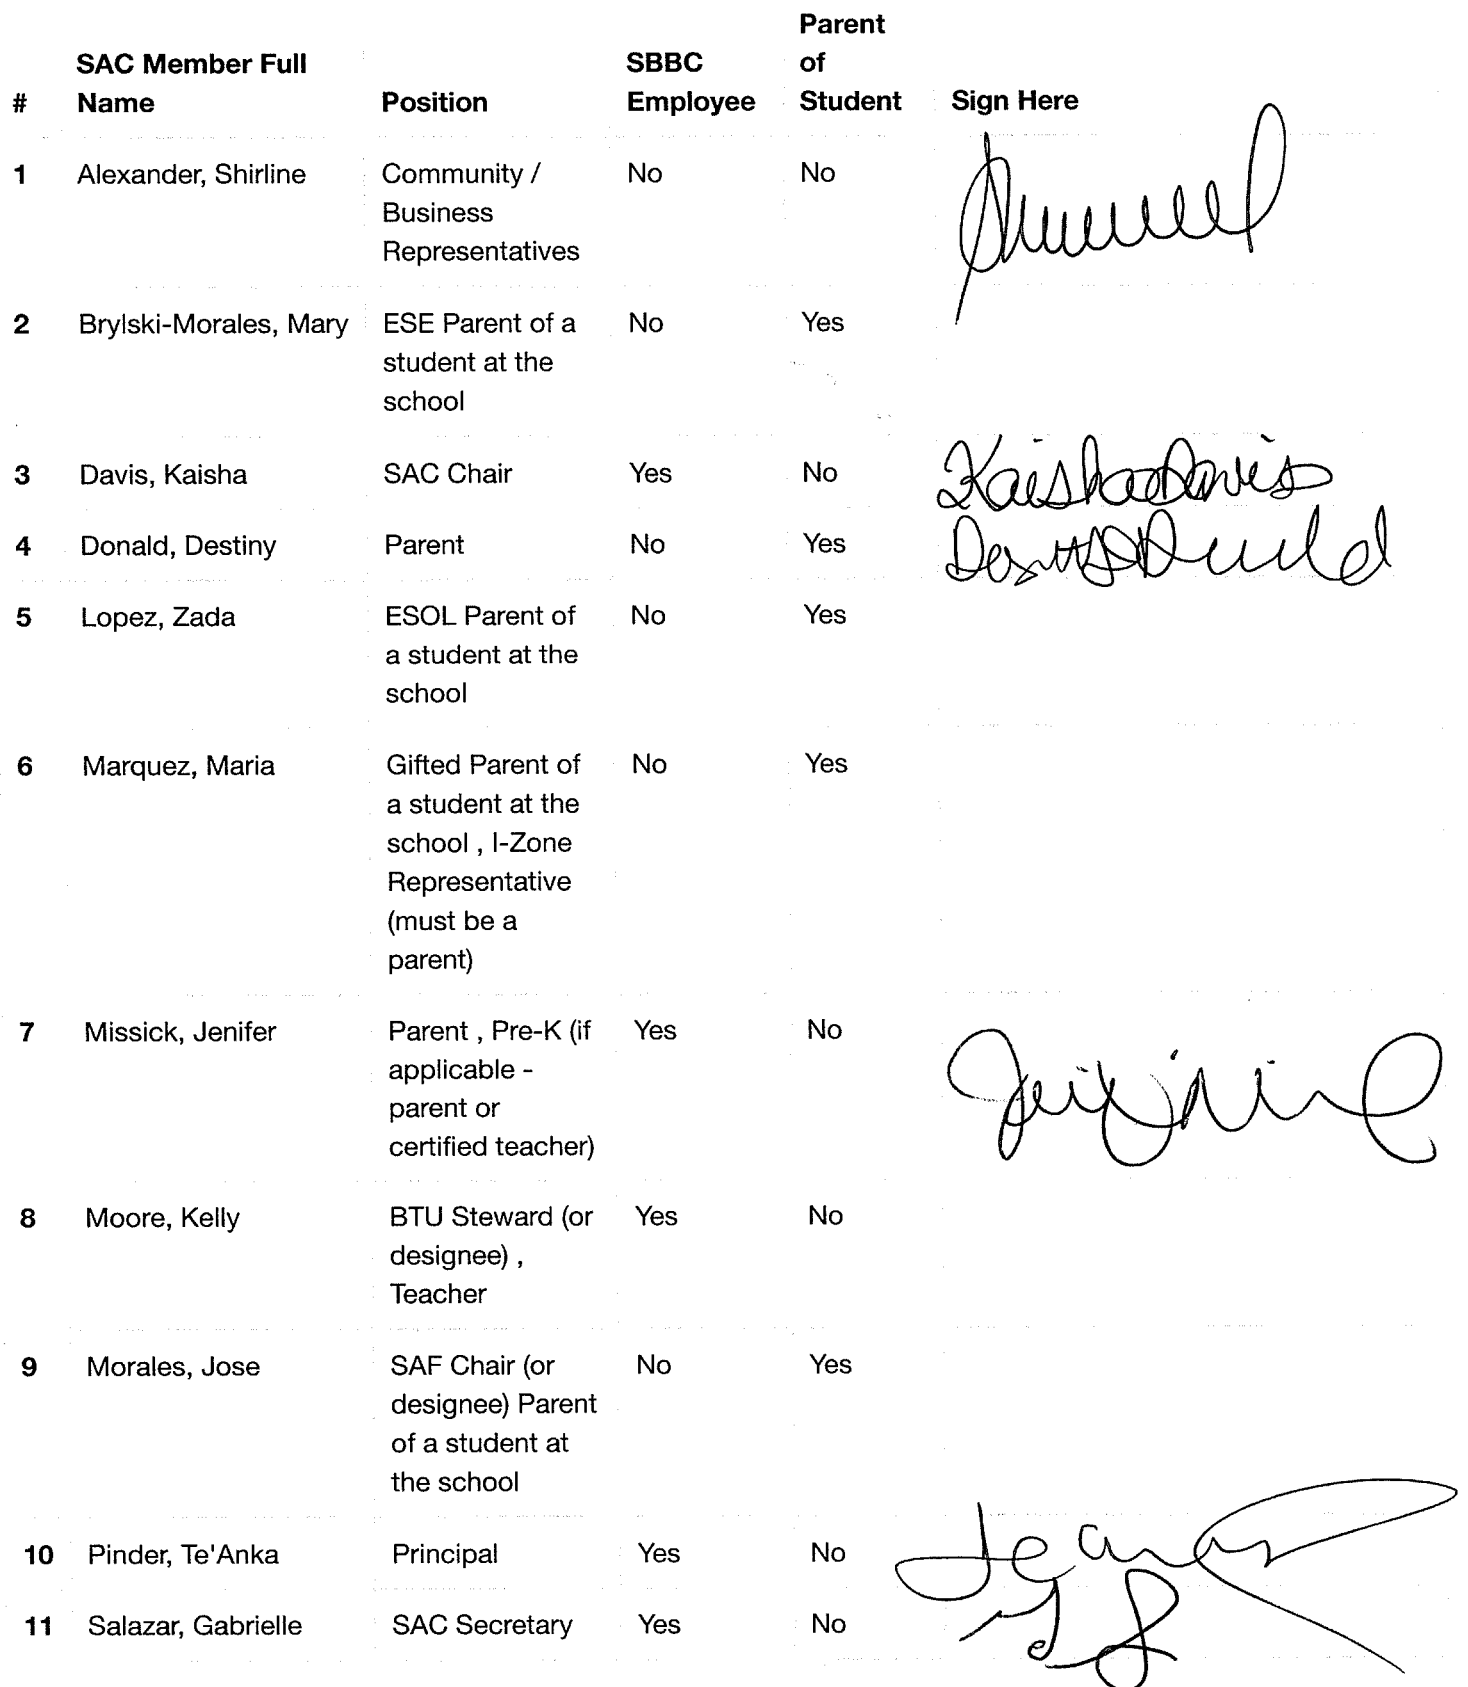 Parent
SAC Member Full SBBC of
# Name Position Employee Student Sign Here
1 Alexander, Shirline Community / No No
Business
Representatives
2 Brylski-Morales, Mary ESE Parent of a No Yes
student at the
school
3 Davis, Kaisha SAC Chair Yes No Kaisha Davis
4 Donald, Destiny Parent No Yes Destiny Donald
5 Lopez, Zada ESOL Parent of No Yes
a student at the
school
6 Marquez, Maria Gifted Parent of No Yes
a student at the
school , I-Zone
Representative
(must be a
parent)
7 Missick, Jenifer Parent , Pre-K (if Yes No
applicable -
parent or
certified teacher)
8 Moore, Kelly BTU Steward (or Yes No
designee) ,
Teacher
9 Morales, Jose SAF Chair (or No Yes
designee) Parent
of a student at
the school
10 Pinder, Te'Anka Principal Yes No
11 Salazar, Gabrielle SAC Secretary Yes No